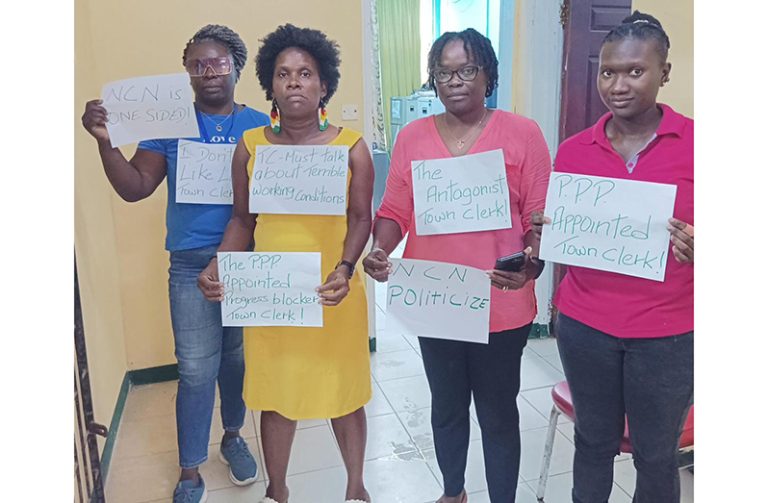 NCN is
ONE SIDED!
I Don't
Like
Town Clerk
TC-Must talk
about Terrible
Working Conditions
The P.P.P.
Appointed
Progress blocker
Town Clerk!
The
Antagonist
Town Clerk!
NCN
POLITICIZE
P.P.P.
Appointed
Town Clerk!